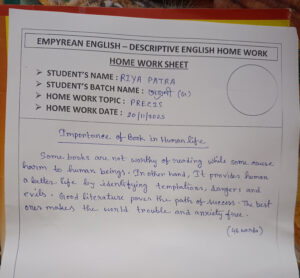 EMPYREAN ENGLISH – DESCRIPTIVE ENGLISH HOME WORK
HOME WORK SHEET
➤ STUDENT'S NAME : RIYA PATRA
➤ STUDENT'S BATCH NAME : (01)
➤ HOME WORK TOPIC : PRECIS
➤ HOME WORK DATE : 20/11/2025
Importance of Book in Human life
Some books are not worthy of reading while some cause
harm to human beings. In other hand, It provides human
a better life by identifying temptations, dangers and
evils. Good literature paves the path of success. The best
ones makes the world trouble and anxiety free.
(46 words)